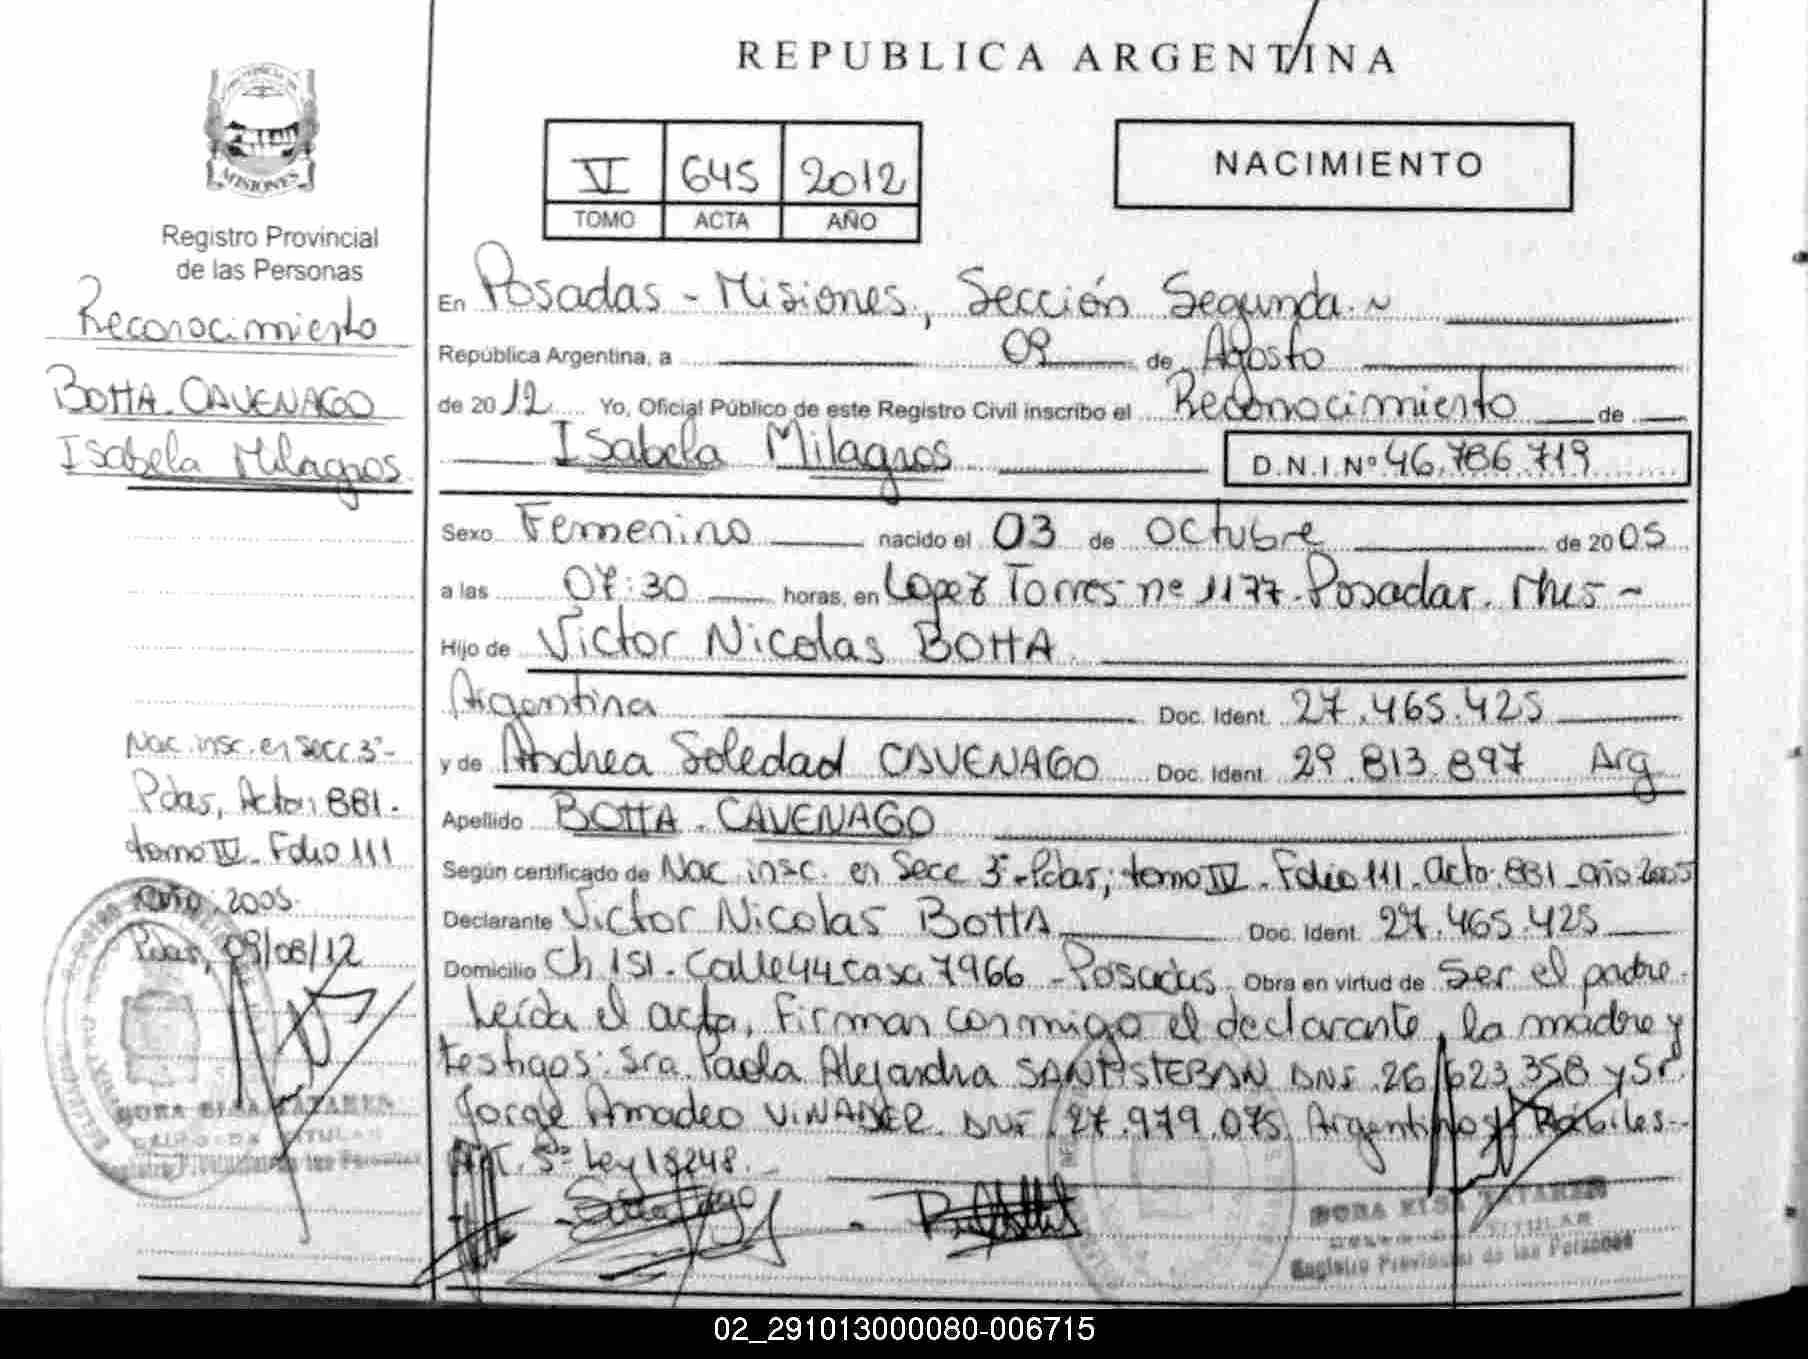 REPUBLICA ARGENTINA
MISIONES
Registro Provincial
de las Personas
Reconocimiento
BOTTA CAVENAGO
Isabela Milagros
Nac. insc. en Secc. 3°-
Pdas, Acta: 881.
tomo IV - Folio 111
Año: 2005.
Pdas, 09/08/12
DORA ELSA TATAREN
TITULAR
Registro Provincial de las Personas
VI 645 2012
TOMO ACTA AÑO
NACIMIENTO
En Posadas - Misiones, Sección Segunda.~
República Argentina, a 09 de Agosto
de 2012 Yo, Oficial Público de este Registro Civil inscribo el Reconocimiento de
Isabela Milagros D.N.I. Nº 46.786.719
Sexo Femenino nacido el 03 de Octubre de 2005
a las 07:30 horas, en Lopez Torres nº 1177. Posadas. Mnes -
Hijo de Victor Nicolas BOTTA
Argentina Doc. Ident. 27.465.425
y de Andrea Soledad CAVENAGO Doc. Ident. 29.813.897 Arg
Apellido BOTTA - CAVENAGO
Según certificado de Nac. insc. en Secc 3°-Pdas, tomo IV - Folio 111. Acta: 881 - año 2005
Declarante Victor Nicolas BOTTA Doc. Ident. 27.465.425
Domicilio Ch 151. Calle 44 casa 7966 - Posadas Obra en virtud de Ser el padre.
Leída el acta, firman conmigo el declarante, la madre y
testigos: Sra. Paola Alejandra SANTISTEBAN DNI 26.623.358 y Sr.
Jorge Amadeo VINADER. DNI 27.979.075 Argentinos y Hábiles.-
ART. 5º Ley 18248.
DORA ELSA TATAREN
TITULAR
Registro Provincial de las Personas
02_291013000080-006715